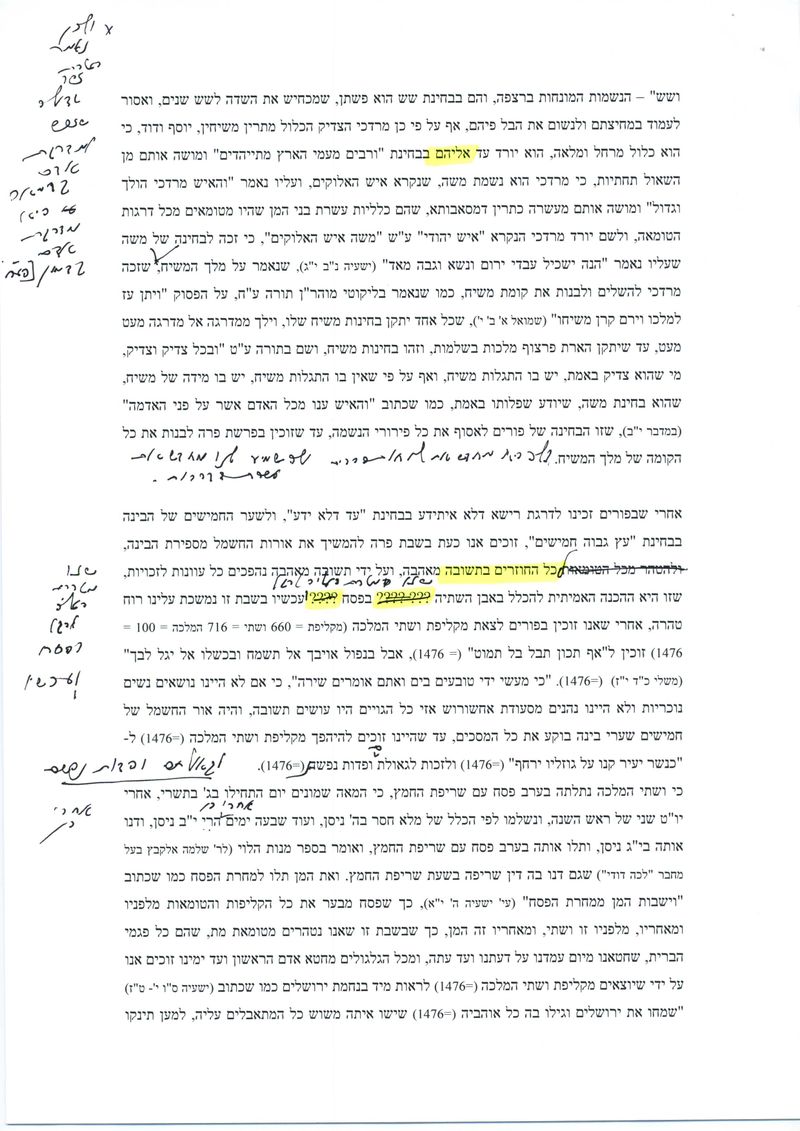 ושש" – הנשמות המונחות ברצפה, והם בבחינת שש הוא פשתן, שמכחיש את השדה לשש שנים, ואסור
לעמוד במחיצתם ולנשום את הבל פיהם, אף על פי כן מרדכי הצדיק הכלול מתרין משיחין, יוסף ודוד, כי
הוא כלול מרחל ומלאה, הוא יורד עד אליהם בבחינת "ורבים מעמי הארץ מתייהדים" ומושה אותם מן
השאול תחתיות, כי מרדכי הוא נשמת משה, שנקרא איש האלוקים, ועליו נאמר "והאיש מרדכי הולך
וגדול" ומושה אותם מעשרה כתרין דמסאבותא, שהם כלליות עשרת בני המן שהיו מטומאים מכל דרגות
הטומאה, ולשם יורד מרדכי הנקרא "איש יהודי" ע"ש "משה איש האלוקים", כי זכה לבחינה של משה
שעליו נאמר "הנה ישכיל עבדי ירום ונשא וגבה מאד" (ישעיה נ"ב י"ג), שנאמר על מלך המשיח, שזכה
מרדכי להשלים ולבנות את קומת משיח, כמו שנאמר בליקוטי מוהר"ן תורה ע"ח, על הפסוק "ויתן עז
למלכו וירם קרן משיחו" (שמואל א' ב' י'), שכל אחד יתקן בחינות משיח שלו, וילך ממדרגה אל מדרגה מעט
מעט, עד שיתקן הארת פרצוף מלכות בשלמות, וזהו בחינות משיח, ושם בתורה ע"ט "ובכל צדיק וצדיק,
מי שהוא צדיק באמת, יש בו התגלות משיח, ואף על פי שאין בו התגלות משיח, יש בו מידה של משיח,
שהוא בחינת משה, שיודע שפלותו באמת, כמו שכתוב "והאיש ענו מכל האדם אשר על פני האדמה"
(במדבר י"ב), שזו הבחינה של פורים לאסוף את כל פירורי הנשמה, עד שזוכין בפרשת פרה לבנות את כל
הקומה של מלך המשיח.
אחרי שבפורים זכינו לדרגת רישא דלא איתידע בבחינת "עד דלא ידע", ולשער החמישים של הבינה
בבחינת "עץ גבוה חמישים", זוכים אנו כעת בשבת פרה להמשיך את אורות החשמל מספירת הבינה,
ולהטהר מכל הטומאות כל החוזרים בתשובה מאהבה, ועל ידי תשובה מאהבה נהפכים כל עוונות לזכויות,
שזו היא ההכנה האמיתית להכלל באבן השתיה ???-???? בפסח ????! עכשיו בשבת זו נמשכת עלינו רוח
טהרה, אחרי שאנו זוכין בפורים לצאת מקליפת ושתי המלכה (מקליפת = 660 ושתי = 716 המלכה = 100 =
1476) זוכין ל"אף תכון תבל בל תמוט" (= 1476), אבל בנפול אויבך אל תשמח ובכשלו אל יגל לבך"
(משלי כ"ד י"ז) (=1476). "כי מעשי ידי טובעים בים ואתם אומרים שירה", כי אם לא היינו נושאים נשים
נוכריות ולא היינו נהנים מסעודת אחשורוש אזי כל הגויים היו עושים תשובה, והיה אור החשמל של
חמישים שערי בינה בוקע את כל המסכים, עד שהיינו זוכים להיהפך מקליפת ושתי המלכה (=1476) ל-
"כנשר יעיר קנו על גוזליו ירחף" (=1476) ולזכות לגאולת ופדות נפשם (=1476). לגאולתם ופדות נפשם
כי ושתי המלכה נתלתה בערב פסח עם שריפת החמץ, כי המאה שמונים יום התחילו בג' בתשרי, אחרי
אחרי כן
יו"ט שני של ראש השנה, ונשלמו לפי הכלל של מלא חסר בה' ניסן, ועוד שבעה ימים הרי י"ב ניסן, ודנו
אחרי
כן
אותה בי"ג ניסן, ותלו אותה בערב פסח עם שריפת החמץ, ואומר בספר מנות הלוי (לר' שלמה אלקבץ בעל
מחבר "לכה דודי") שגם דנו בה דין שריפה בשעת שריפת החמץ. ואת המן תלו למחרת הפסח כמו שכתוב
"וישבות המן ממחרת הפסח" (עי' ישעיה ה' י"א), כך שפסח מבער את כל הקליפות והטומאות מלפניו
ומאחריו, מלפניו זו ושתי, ומאחריו זה המן, כך שבשבת זו שאנו נטהרים מטומאת מת, שהם כל פגמי
הברית, שחטאנו מיום עמדנו על דעתנו ועד עתה, ומכל הגלגולים מחטא אדם הראשון ועד ימינו זוכים אנו
על ידי שיוצאים מקליפת ושתי המלכה (=1476) לראות מיד בנחמת ירושלים כמו שכתוב (ישעיה ס"ו י'- ט"ז)
"שמחו את ירושלים וגילו בה כל אוהביה (=1476) שישו איתה משוש כל המתאבלים עליה, למען תינקו